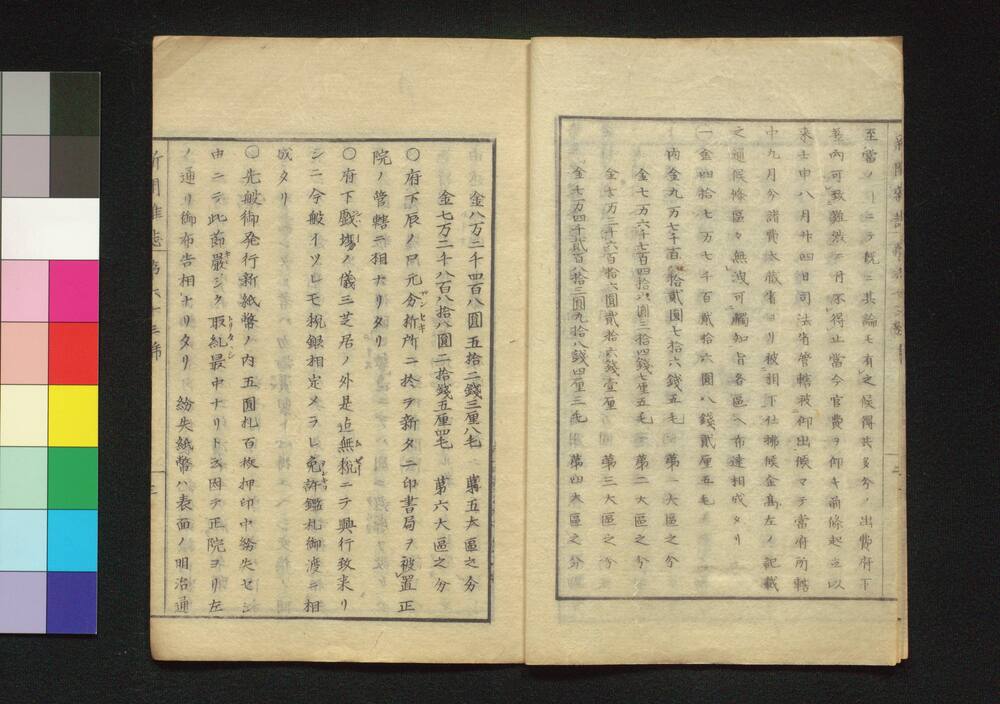 至當ノ ニシテ既ニ其論モ有之候得共多分ノ出費府下
一般へ可致難渋ニ付不得止當今官費ヲ仰キ前條起立以
来壬申八月廿四日司法省管轄被仰出候マテ當府所轄
中九月分諸費大蔵省ヨリ被相下仕拂候金高左ノ記載
之通候條區々無洩可觸知旨各區へ布達相成タリ
一金四拾七万七千百貳拾六圓八錢貳厘五毛
内金九万七千百 拾貳圓七拾六錢五毛 第一大區之分
金七万六千七百四拾八圓三拾四錢七厘五毛 第二大區之分
金七万三千六百拾六圓貳拾六錢壹厘 第三大區之分
金七万四千貳百八拾三圓九拾八錢四厘三毛 第四大區之分
金八万二千四百八圓五拾二錢三厘八毛 第五大區之分
金七万二千八百八拾八圓二拾錢五厘四毛 第六大區之分
〇府下辰ノ口元分析所ニ於テ新タニ印書局ヲ被置正
院ノ管轄ニ相ナリタリ
〇府下戯場ノ儀三芝居ノ外是迠無税ニテ興行致来リ
シニ今般イツレモ税銀相定メラレ免許鑑札御渡ニ相
成タリ
〇先般御発行新紙幣ノ内五圓札百枚押印中紛失セシ
由ニテ此節嚴シク取糺最中ナリト云因テ正院ヨリ左
ノ通リ御布告相ナリタリ 紛失紙幣ハ表面ノ明治通
新聞雜誌 第六十三號